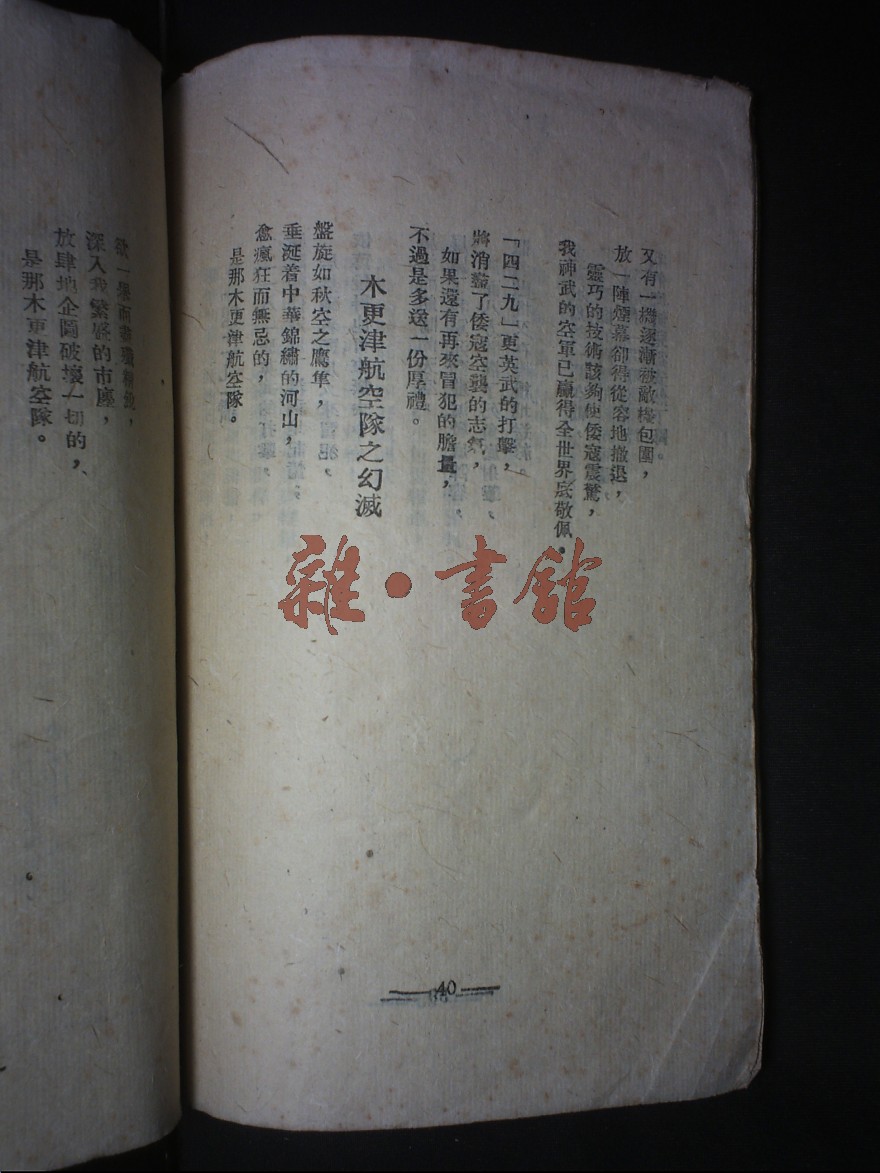 又有一機逐漸被敵機包圍，
放一陣煙幕卻得從容地撤退，
靈巧的技術該夠使倭寇震驚，
我神武的空軍已贏得全世界底敬佩。
「四二九」更英武的打擊，
將消蓋了倭寇空襲的志氣，
如果還有再來冒犯的膽量，
不過是多送一份厚禮。
木更津航空隊之幻滅
盤旋如秋空之鷹隼，
垂涎着中華錦繡的河山，
愈瘋狂而無忌的，
是那木更津航空隊。
40
欲一果而
深入我繁盛的市廛，
放肆地企圖破壞一切的，
是那木更津航空隊。
雜·書館